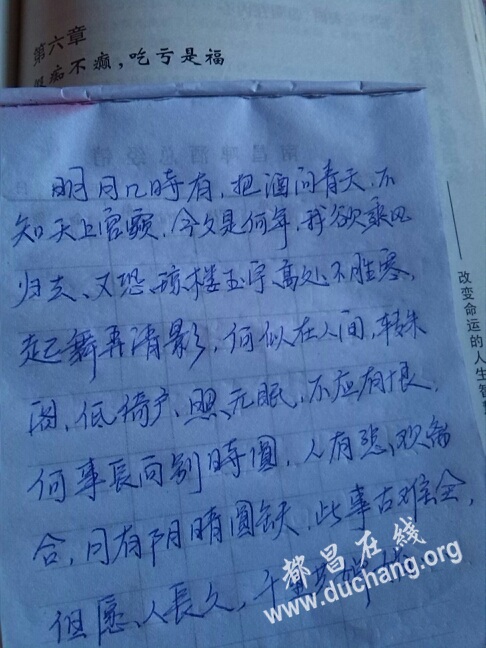 第六章
痴不癫，吃亏是福
明月几時有，把酒问青天，不
知天上宫颢，今夕是何年，我欲乘风
归去、又恐、琼楼玉宇、高处不胜寒，
起舞弄清影，何似在人间，转朱
阁，低绮户、照无眠，不应有恨，
何事長向别時圆，人有悲、欢離
合，月有阴晴圆缺，此事古难全，
但愿、人長久，千里共
改变命运的人生智
都昌在线
www.duchang.org